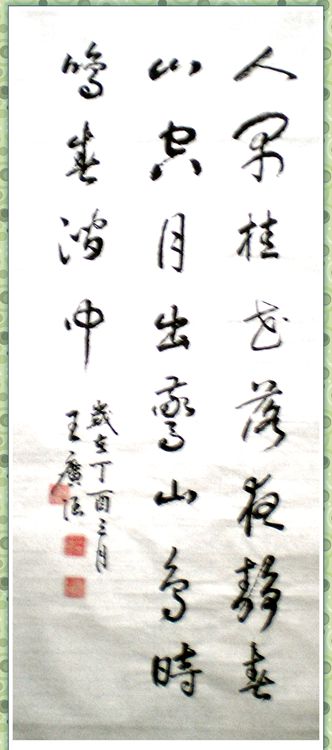 人閑桂花落夜靜春
山空月出驚山鳥時
鳴春澗中
歲在丁酉三月
王廣